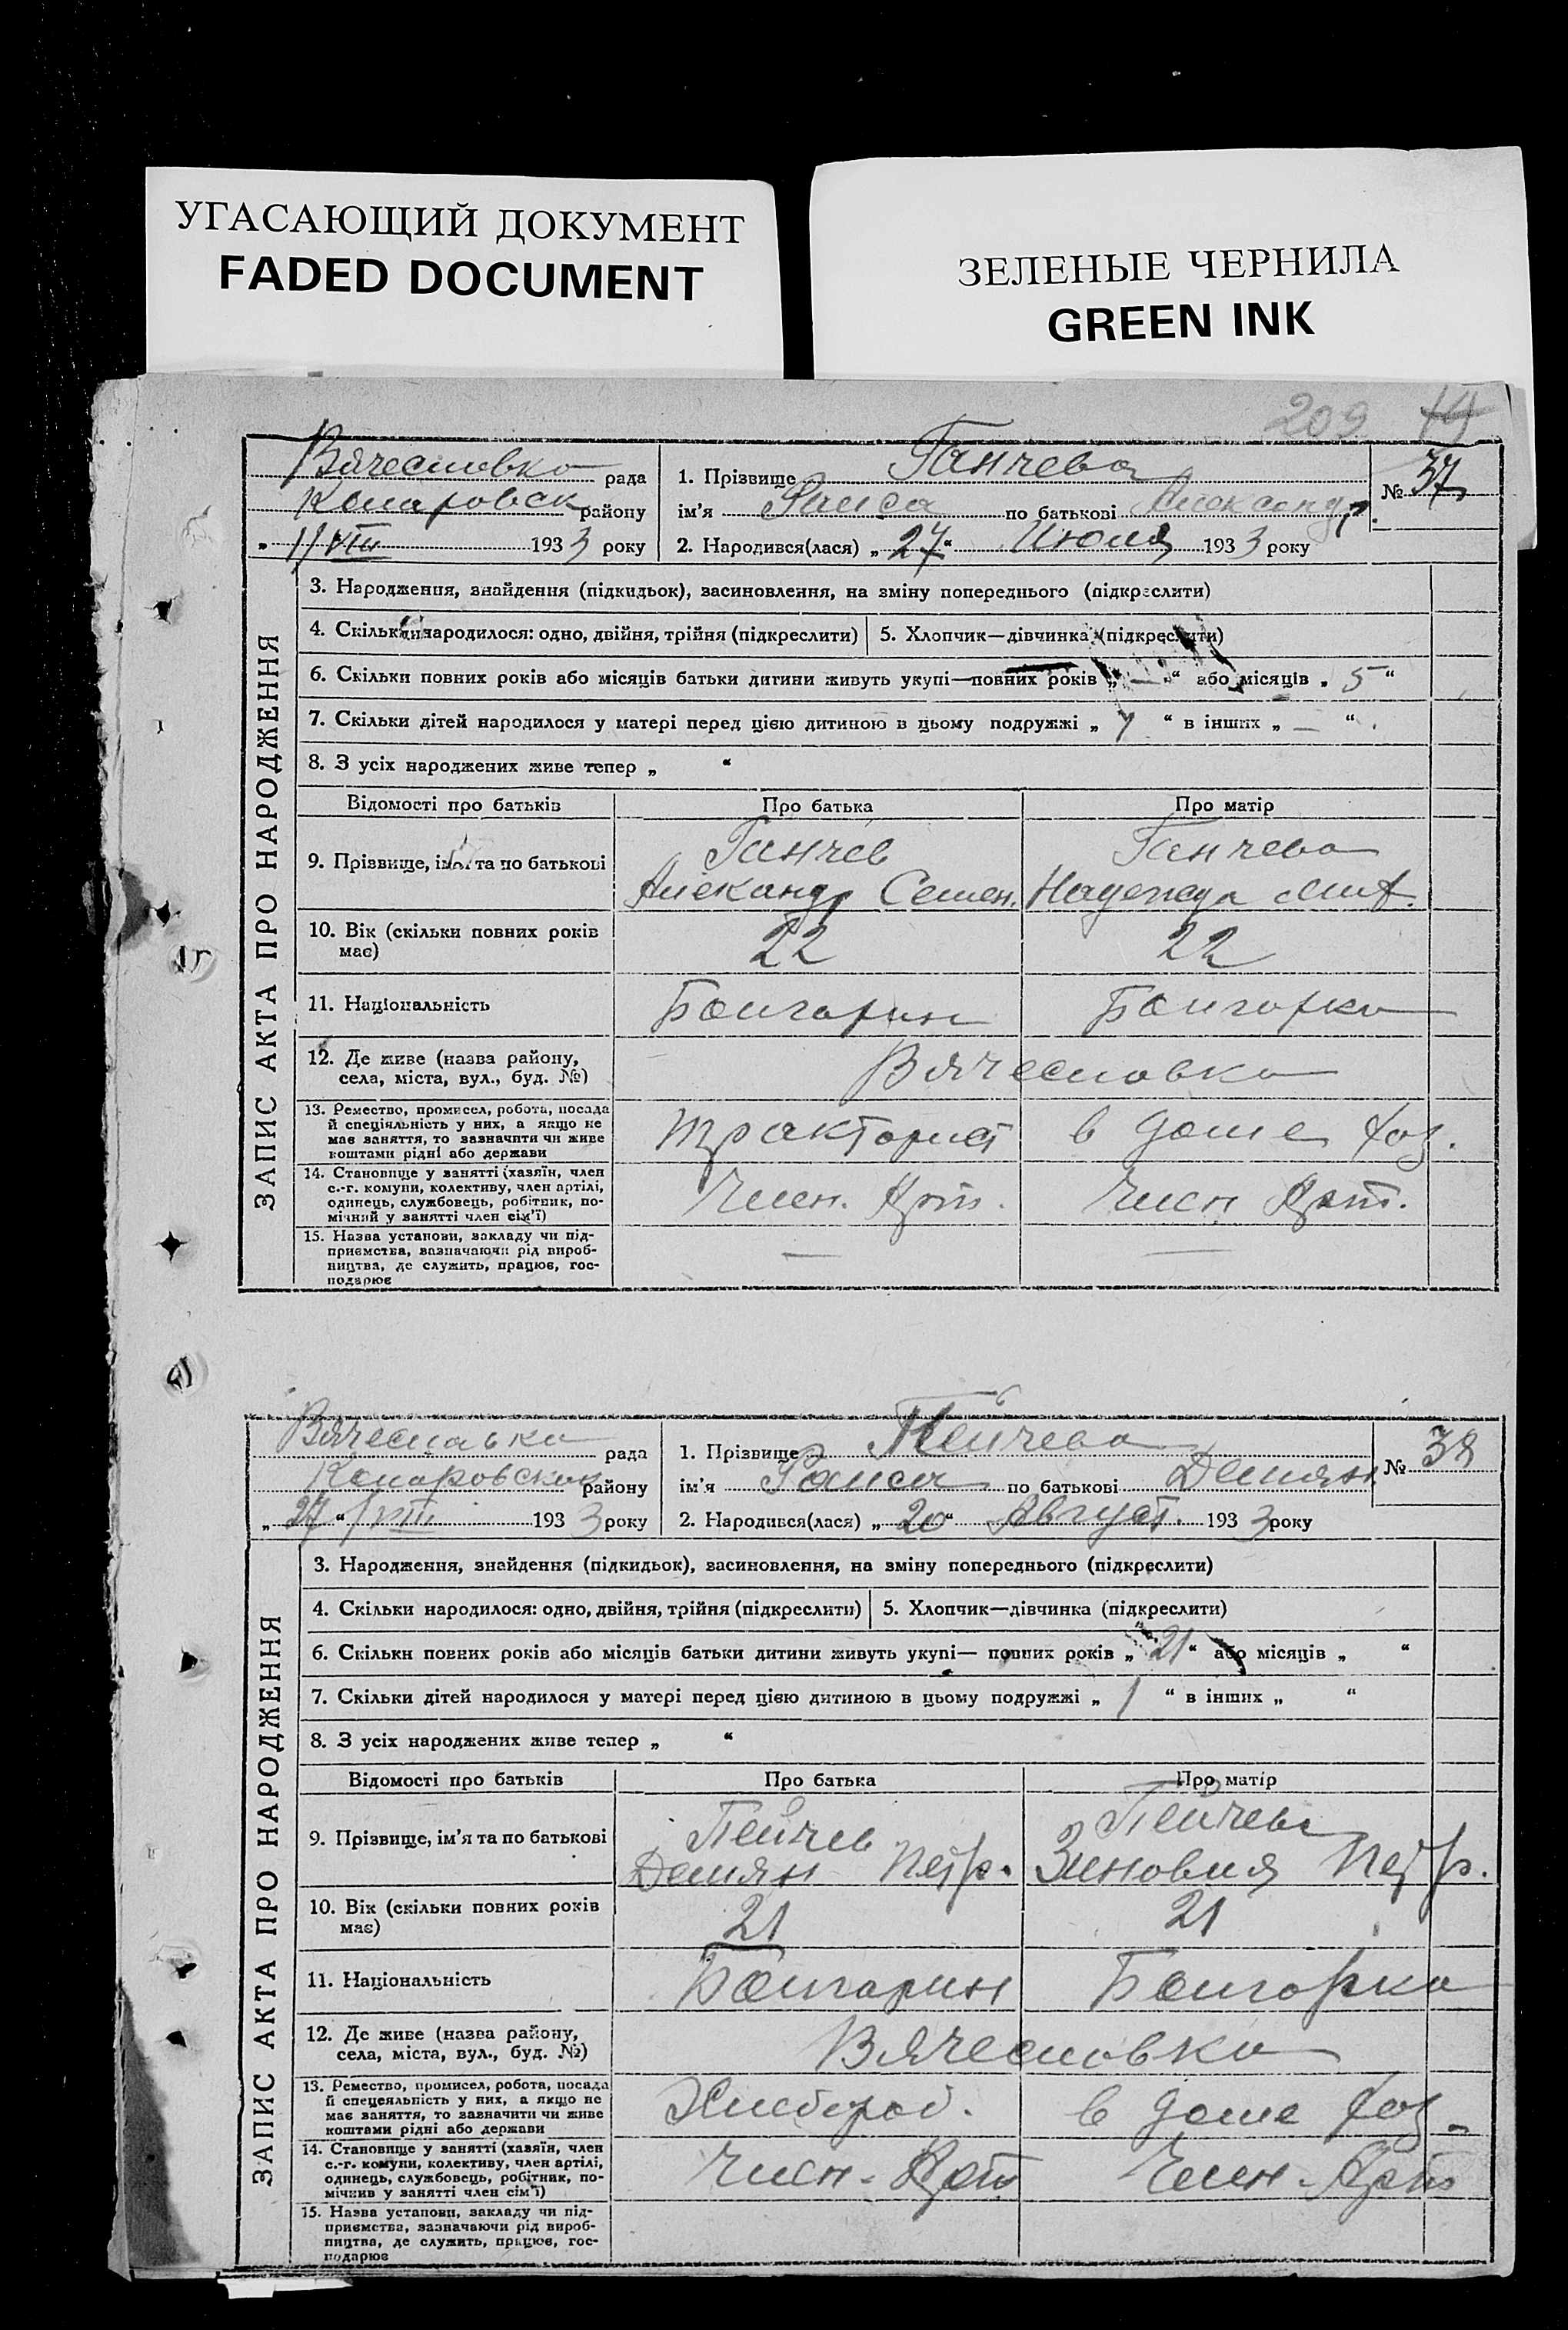 УГАСАЮЩИЙ ДОКУМЕНТ
FADED DOCUMENT
ЗЕЛЕНЫЕ ЧЕРНИЛА
GREEN INK
209
Вячеславка рада
Коларовск району
11/VIII 1933 року
1. Прізвище Ганчева
ім'я Раиса по батькові Александр.
№ 37
2. Народився(лася) „27“ Июля 1933 року
ЗАПИС АКТА ПРО НАРОДЖЕННЯ
3. Народження, знайдення (підкидьок), засиновлення, на зміну попереднього (підкреслити)
4. Скільки народилося: одно, двійня, трійня (підкреслити) 5. Хлопчик—дівчинка (підкреслити)
6. Скільки повних років або місяців батьки дитини живуть укупі—повних років „—“ або місяців „5“
7. Скільки дітей народилося у матері перед цією дитиною в цьому подружжі „ “ в інших „—“
8. З усіх народжених живе тепер „ “
Відомості про батьків Про батька Про матір
9. Прізвище, ім'я та по батькові
Ганчев Ганчева
Александр Семен. Надежда Мит.
10. Вік (скільки повних років має) 22 22
11. Національність Болгарин Болгарка
12. Де живе (назва району, села, міста, вул., буд. №) Вячеславка
13. Ремество, промисел, робота, посада
й спеціяльність у них, а якщо не
має заняття, то зазначити чи живе
коштами рідні або держави
тракторист в доме хоз.
14. Становище у занятті (хазяїн, член
с.-г. комуни, колективу, член артілі,
одинець, службовець, робітник, по-
мічний у занятті член сім'ї)
Член. Арт. Член Арт.
15. Назва установи, закладу чи під-
приємства, зазначаючи рід вироб-
ництва, де служить, працює, гос-
подарює
— —
Вячеславка рада
Коларовском району
„27“/VIII 1933 року
1. Прізвище Пейчева
ім'я Раиса по батькові Демьян.
№ 38
2. Народився(лася) „20“ Август. 1933 року
ЗАПИС АКТА ПРО НАРОДЖЕННЯ
3. Народження, знайдення (підкидьок), засиновлення, на зміну попереднього (підкреслити)
4. Скільки народилося: одно, двійня, трійня (підкреслити) 5. Хлопчик—дівчинка (підкреслити)
6. Скільки повних років або місяців батьки дитини живуть укупі— повних років „21“ або місяців „ “
7. Скільки дітей народилося у матері перед цією дитиною в цьому подружжі „1“ в інших „ “
8. З усіх народжених живе тепер „ “
Відомості про батьків Про батька Про матір
9. Прізвище, ім'я та по батькові
Пейчев Пейчева
Демян Петр. Зиновия Петр.
10. Вік (скільки повних років має) 21 21
11. Національність Болгарин Болгорка
12. Де живе (назва району, села, міста, вул., буд. №) Вячеславка
13. Ремество, промисел, робота, посада
й спецеяльність у них, а якщо не
має заняття, то зазначити чи живе
коштами рідні або держави
Хлебороб. в доме хоз.
14. Становище у занятті (хазяїн, член
с.-г. комуни, колективу, член артілі,
одинець, службовець, робітник, по-
мічник у занятті член сім'ї)
Член. Арт Член. Арт
15. Назва установи, закладу чи під-
приємства, зазначаючи рід вироб-
ництва, де служить, працює, гос-
подарює